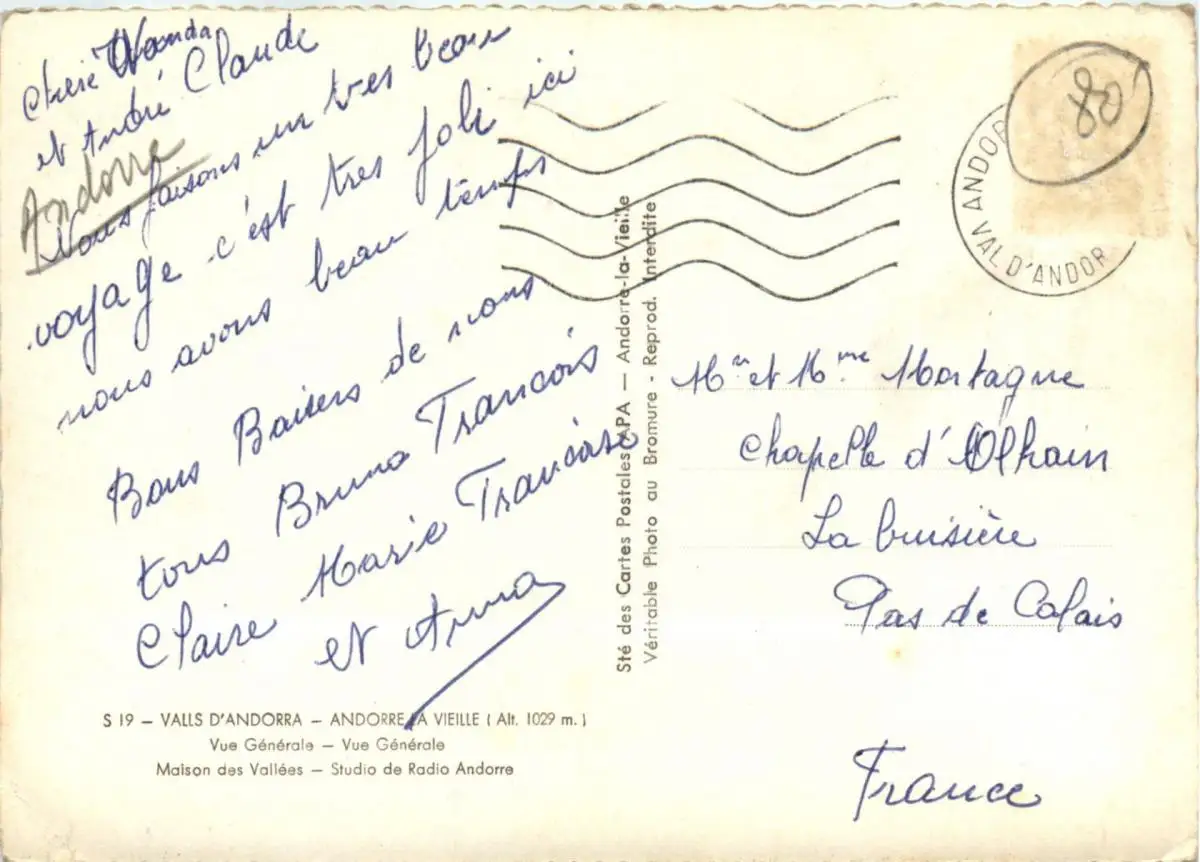 Cherie Wanda
et André Claude
Andorre
Nous faisons un tres beau
voyage c'est tres joli ici
nous avons beau temps
Bons Baisers de nous
tous Bruno Francois
Claire Marie Francoise
et Anna
S 19 — VALLS D'ANDORRA — ANDORRE LA VIEILLE ( Alt. 1029 m. )
Vue Générale — Vue Générale
Maison des Vallées — Studio de Radio Andorre
Sté des Cartes Postales APA — Andorre-la-Vieille
Véritable Photo au Bromure - Reprod. Interdite
80
ANDOR
VAL D'ANDOR
Mr et Mme Mortagne
Chapelle d'Olhain
La buisière
Pas de Calais
France